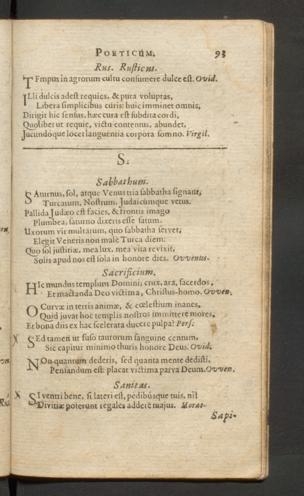 POETICUM. 93
Rus. Rusticus.
TEmpus in agrorum cultu consumere dulce est. Ovid.
ILli dulcis adest requies, & pura voluptas,
Libera simplicibus curis: huic imminet omnis,
Dirigit hic sensus, hæc cura est subdita cordi,
Quolibet ut requie, victu contentus, abundet,
Jucundoque locet languentia corpora somno. Virgil.
S.
Sabbathum.
SAturnus, sol, atque Venus tria sabbatha signant,
Turcarum, Nostrum, Judaicumque vetus.
Pallida Judæo est facies, & frontis imago
Plumbea, saturno dixeris esse satum.
Uxorum vir multarum, quo sabbatha servet,
Elegit Veneris non male Turca diem:
Quo sol justitiæ, mea lux, mea vita revixit,
Solis apud nos est sola in honore dies. Ovvenus.
Sacrificium.
HIc mundus templum Domini; crux, ara, sacerdos,
Et mactanda Deo victima, Christus-homo. Ovven.
O Curvæ in terris animæ, & cœlestium inanes,
Quid juvat hoc templis nostros immittere mores,
Et bona diis ex hac scelerata ducere pulpa? Pers:
X SEd tamen ut fuso taurorum sanguine centum,
Sic capitur minimo thuris honore Deus. Ovid.
NOn quantum dederis, sed quanta mente dedisti,
Pensandum est: placat victima parva Deum. Ovven.
Sanitas.
X SI ventri bene, si lateri est, pedibúsque tuis, nil
Divitiæ poterunt regales addere majus. Horat-
Sapi-